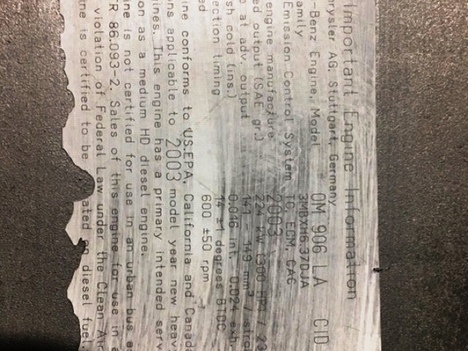 Important Engine Information
rysler AG, Stuttgart, Germany
-Benz Engine, Model OM 906 LA CID
amily 3MBXH6.37DJA
Emission Control System TC EDM, CAC
engine manufacture 2003
ed output (SAE, gr.) 224 kW (300 HP) / 23
at adv. output 141 149 mm³ / strok
sh cold (ins.) 0.016 int. 0.024 exh.
ection timing 14 ±1 degrees BTDC
600 ±50 rpm
ine conforms to US-EPA, California and Canad
ns applicable to 2003 model year new heav
ines. This engine has a primary intended serv
on as a medium HD diesel engine.
ne is not certified for use in an urban bus as
FR 86.093-2. Sales of this engine for use in a
violation of Federal Law under the Clean Air
ne is certified to be ated on diesel fuel